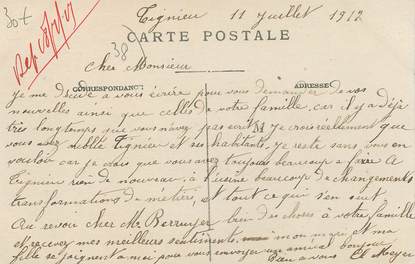 Tignieu 11 Juillet 1912
38)
CARTE POSTALE
Cher Monsieur
CORRESPONDANCE ADRESSE
Je me décide à vous écrire pour vous demander de vos
nouvelles ainsi que celles de votre famille, car il y a déjà
très longtemps que vous n'avez pas écrit Je crois réellement que
vous avez oublié Tignieu et ses habitants, je reste sans vous en
vouloir car je sais que vous avez toujours beaucoup a faire A
Tignieu rien de nouveau, à l'usine beaucoup de changements
transformations de métiers, et tout ce qui s'en suit
Au revoir cher Mr Berruyer bien des choses à votre famille
et recevez mes meilleurs sentiments mon mari et ma
fille se joignent a moi pour vous envoyer un amical bonjour
Bien a vous